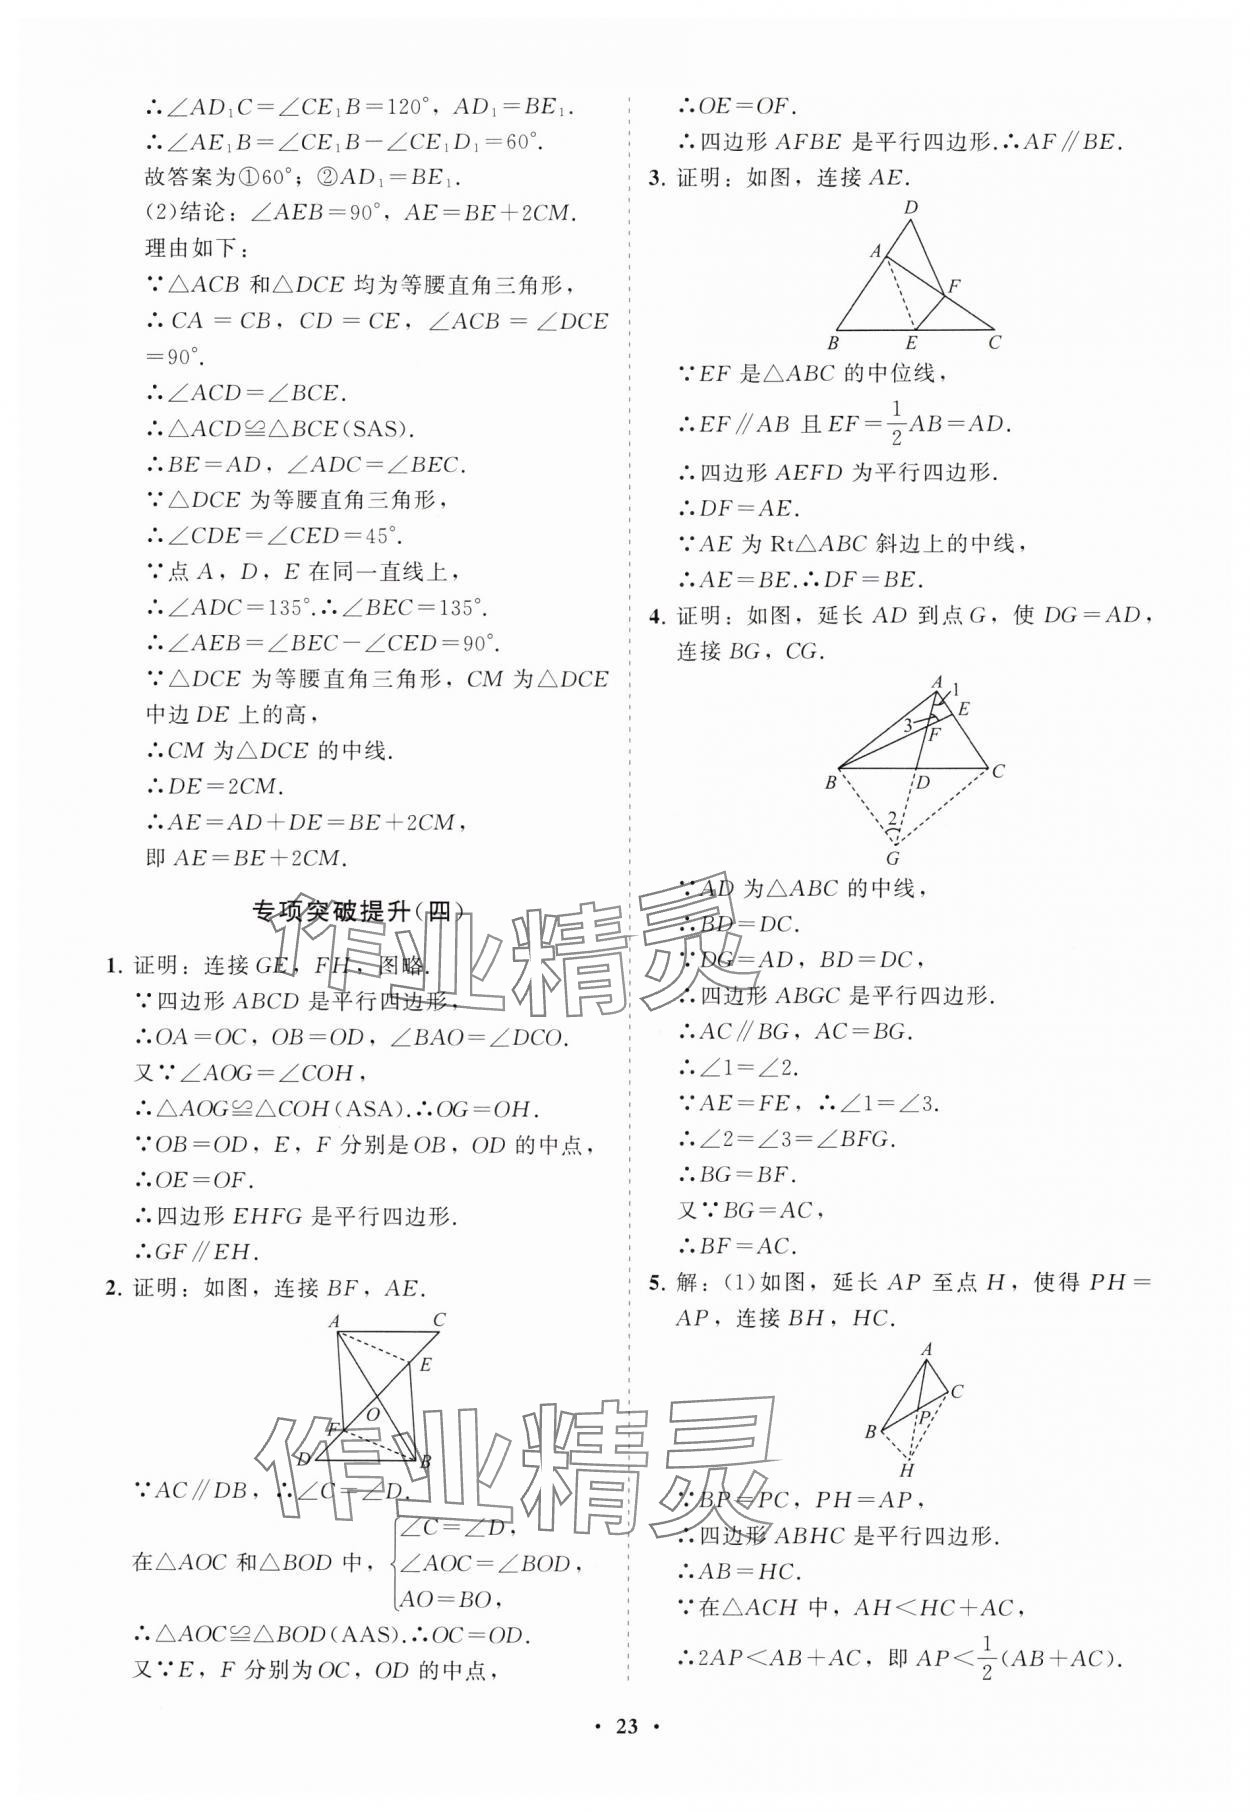 ∴∠AD₁C=∠CE₁B=120°,AD₁=BE₁.
∴∠AE₁B=∠CE₁B-∠CE₁D₁=60°.
故答案为①60°;②AD₁=BE₁.
(2)结论:∠AEB=90°,AE=BE+2CM.
理由如下:
∵△ACB 和△DCE 均为等腰直角三角形,
∴CA=CB,CD=CE,∠ACB=∠DCE
=90°.
∴∠ACD=∠BCE.
∴△ACD≌△BCE(SAS).
∴BE=AD,∠ADC=∠BEC.
∵△DCE 为等腰直角三角形,
∴∠CDE=∠CED=45°.
∵点 A,D,E 在同一直线上,
∴∠ADC=135°.∴∠BEC=135°.
∴∠AEB=∠BEC-∠CED=90°.
∵△DCE 为等腰直角三角形,CM 为△DCE
中边 DE 上的高,
∴CM 为△DCE 的中线.
∴DE=2CM.
∴AE=AD+DE=BE+2CM,
即 AE=BE+2CM.
专项突破提升(四)
1. 证明:连接 GE,FH,图略.
∵四边形 ABCD 是平行四边形,
∴OA=OC,OB=OD,∠BAO=∠DCO.
又∵∠AOG=∠COH,
∴△AOG≌△COH(ASA).∴OG=OH.
∵OB=OD,E,F 分别是 OB,OD 的中点,
∴OE=OF.
∴四边形 EHFG 是平行四边形.
∴GF∥EH.
2. 证明:如图,连接 BF,AE.
A C
E
O
F
D B
∵AC∥DB,∴∠C=∠D.
在△AOC 和△BOD 中,{∠C=∠D,
∠AOC=∠BOD,
AO=BO,
∴△AOC≌△BOD(AAS).∴OC=OD.
又∵E,F 分别为 OC,OD 的中点,
∴OE=OF.
∴四边形 AFBE 是平行四边形.∴AF∥BE.
3. 证明:如图,连接 AE.
D
A
F
B E C
∵EF 是△ABC 的中位线,
∴EF∥AB 且 EF=1/2AB=AD.
∴四边形 AEFD 为平行四边形.
∴DF=AE.
∵AE 为 Rt△ABC 斜边上的中线,
∴AE=BE.∴DF=BE.
4. 证明:如图,延长 AD 到点 G,使 DG=AD,
连接 BG,CG.
A 1
E
3
F
B D C
2
G
∵AD 为△ABC 的中线,
∴BD=DC.
∵DG=AD,BD=DC,
∴四边形 ABGC 是平行四边形.
∴AC∥BG,AC=BG.
∴∠1=∠2.
∵AE=FE,∴∠1=∠3.
∴∠2=∠3=∠BFG.
∴BG=BF.
又∵BG=AC,
∴BF=AC.
5. 解:(1)如图,延长 AP 至点 H,使得 PH=
AP,连接 BH,HC.
A
C
P
B
H
∵BP=PC,PH=AP,
∴四边形 ABHC 是平行四边形.
∴AB=HC.
∵在△ACH 中,AH<HC+AC,
∴2AP<AB+AC,即 AP<1/2(AB+AC).
• 23 •
作业精灵
作业精灵